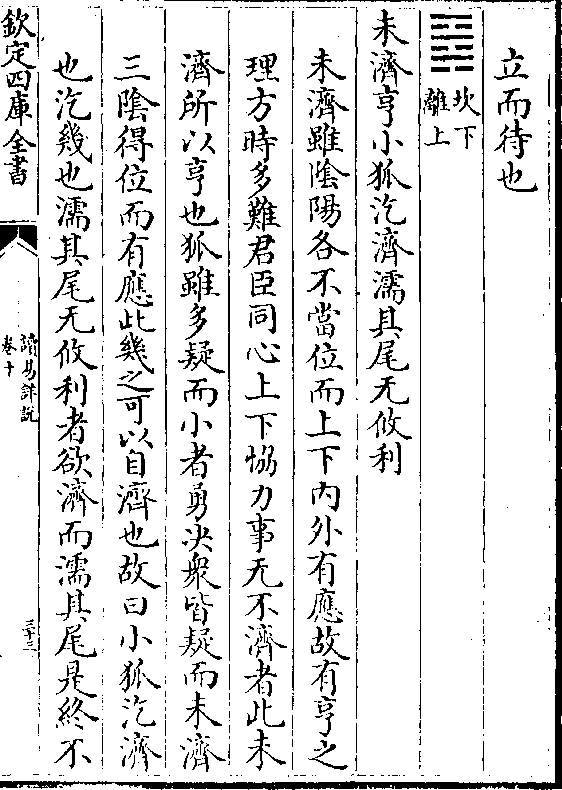 立而待也
坎下
離上
未濟亨小狐汔濟濡其尾无攸利
未濟雖陰陽各不當位而上下内外有應故有亨之
理方時多難君臣同心上下協力事无不濟者此未
濟所以亨也狐雖多疑而小者勇决衆皆疑而未濟
三陰得位而有應此幾之可以自濟也故曰小狐汔濟
也汔幾也濡其尾无攸利者欲濟而濡其尾是終不
欽定四庫全書
讀易詳説
卷十
三十三